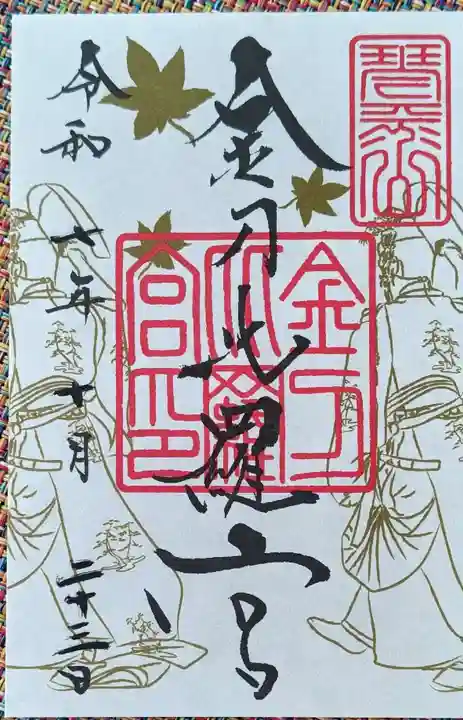 琴平山
金刀比羅宮
金刀
比羅
宮印
令和七年十月二十三日